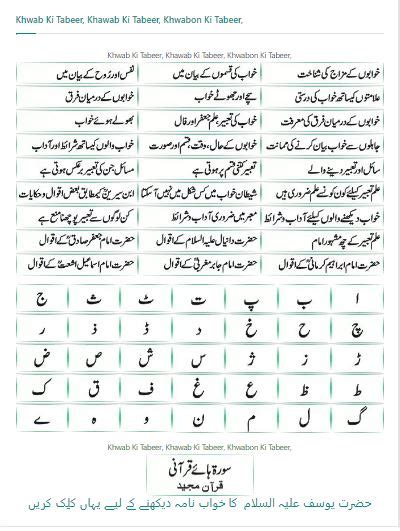 Khwab Ki Tabeer, Khawab Ki Tabeer, Khwabon Ki Tabeer,
Khwab Ki Tabeer, Khawab Ki Tabeer, Khwabon Ki Tabeer,
خوابوں کے مزاج کی شناخت خواب کی قسموں کے بیان میں نفس اور رُوح کے بیان میں
علامتوں کیساتھ خواب کی درستی سچے اور جھوٹے خواب خوابوں کے درمیان فرق
خوابوں کے درمیان فرق کی معرفت خواب کی تعبیر علم جعفر اور فال بھولے ہوئے خواب
جاہلوں سے خواب بیان کرنے کی ممانت خوابوں کے حال، وقت، قسم اور صورت خواب والوں کیساتھ شرائط اور آداب
سائل اور تعبیر دینے والے تعبیر کتنی قسم پر ہوتی ہے مسائل جن کی تعبیر برعکس ہوتی ہے
علم تعبیر کیلئے کون کونسے علم ضروری ہیں شیطان خواب میں کس شکل میں نہیں آ سکتا ابن سیرینؒ کیمطابق بعض اقوال و حکایات
خواب دیکھنے والوں کیلئے آداب و شرائط معبر میں ضروری آداب و شرائط کن لوگوں سے تعبیر پوچھنا منع ہے
علم تعبیر کے چھ مشہور امام حضرت دانیال علیہ السلام کے اقوال حضرت امام جعفر صادقؒ کے اقوال
حضرت امام ابراہیم کرمانیؒ کے اقوال حضرت امام جابر مغربیؒ کے اقوال حضرت امام اسماعیل اشعثؒ کے اقوال
ا ب پ ت ٹ ث ج
چ ح خ د ڈ ذ ر
ڑ ز ژ س ش ص ض
ط ظ ع غ ف ق ک
گ ل م ن و ہ ے
Khwab Ki Tabeer, Khawab Ki Tabeer, Khwabon Ki Tabeer,
سورۃ ہائے قرآنی
قرآن مجید
حضرت یوسف علیہ السلام کا خواب نامہ دیکھنے کے لیے یہاں کلک کریں